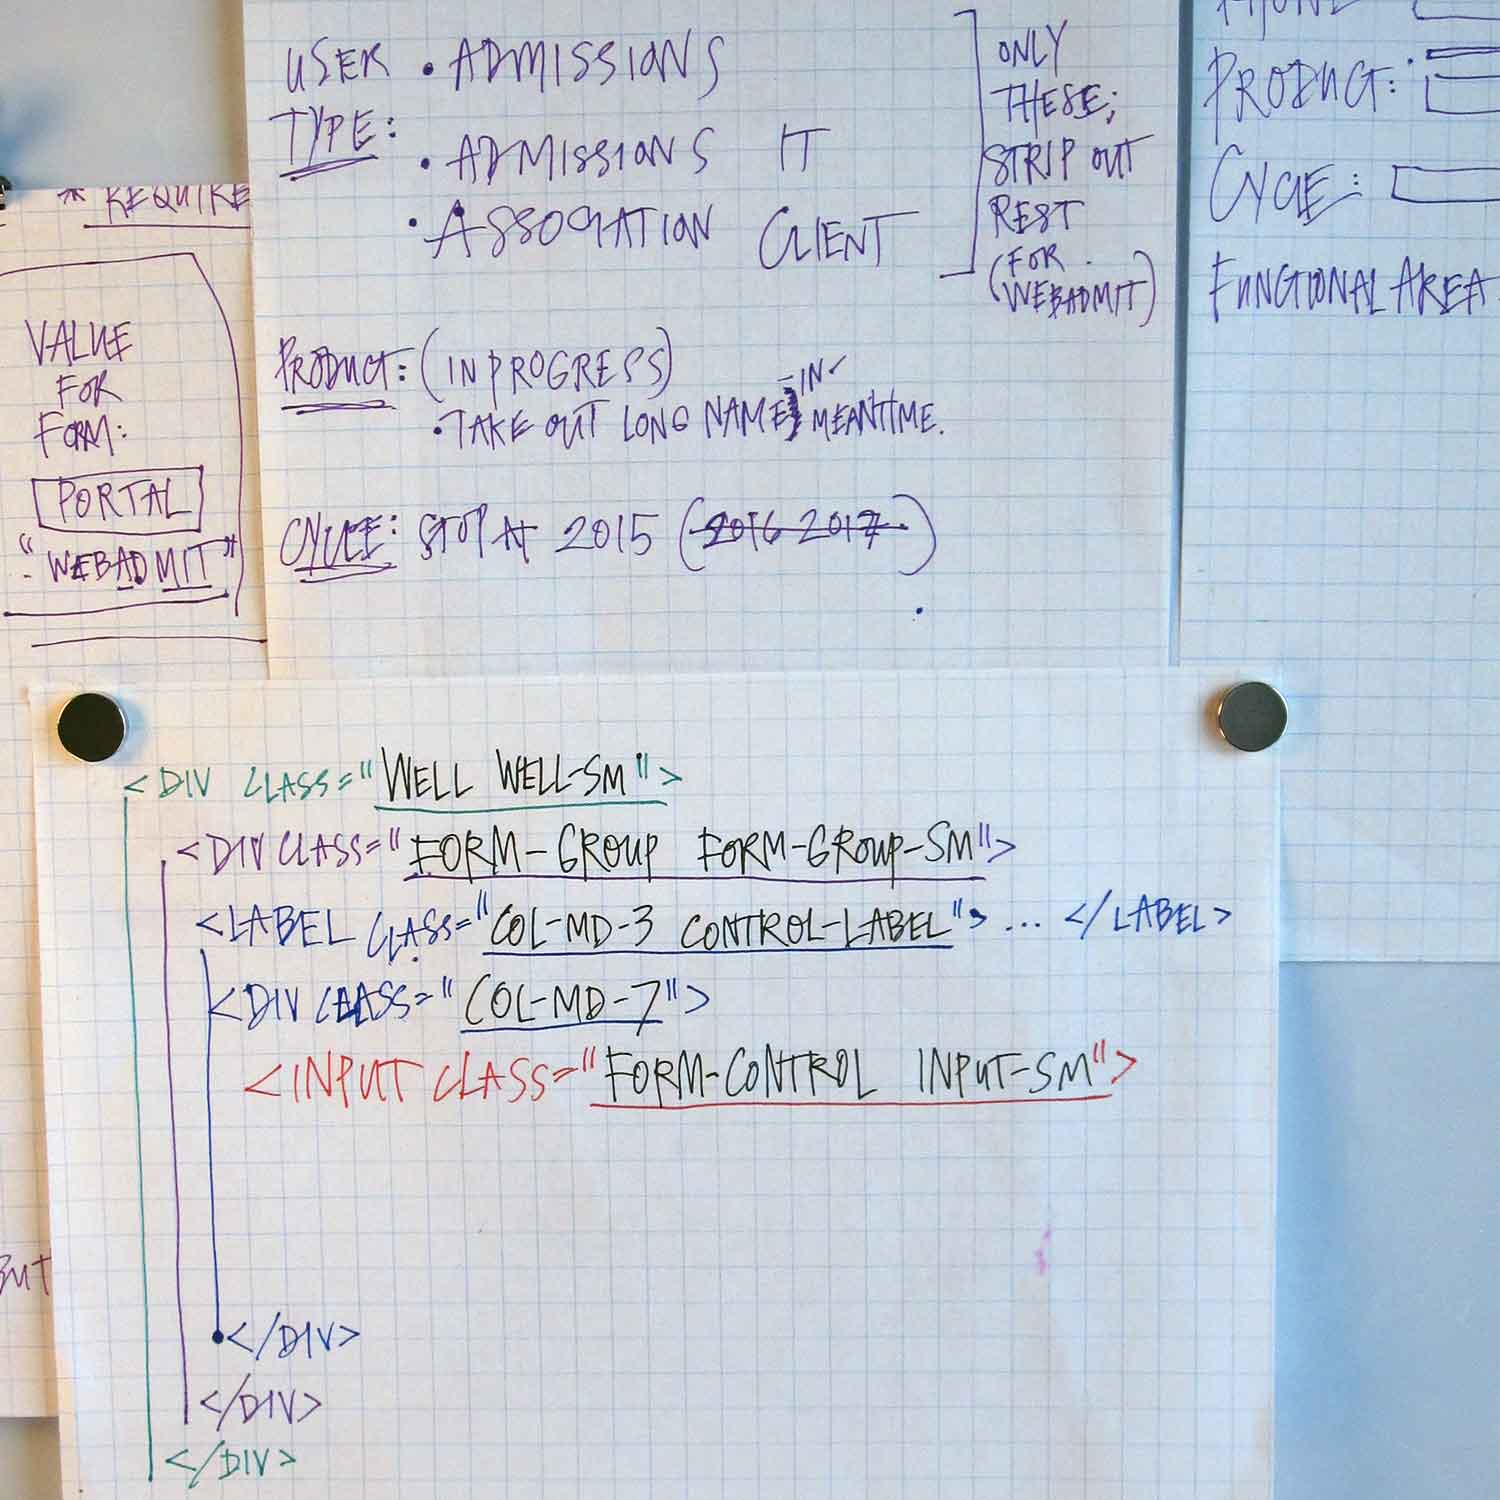 * REQUIRE
VALUE
FOR
FORM:
PORTAL
"WEBADMIT"
BUT
USER TYPE:
• ADMISSIONS
• ADMISSIONS IT
• ASSOCIATION CLIENT
ONLY
THESE;
STRIP OUT
REST
(FOR
WEBADMIT)
PRODUCT: (IN PROGRESS)
• TAKE OUT LONG NAMES -IN- MEANTIME.
CYCLE: STOP AT 2015 (2016 2017)
PHONE
PRODUCT:
CYCLE:
FUNCTIONAL AREA
<DIV CLASS="WELL WELL-SM">
<DIV CLASS="FORM-GROUP FORM-GROUP-SM">
<LABEL CLASS="COL-MD-3 CONTROL-LABEL"> ... </LABEL>
<DIV CLASS="COL-MD-7">
<INPUT CLASS="FORM-CONTROL INPUT-SM">
</DIV>
</DIV>
</DIV>